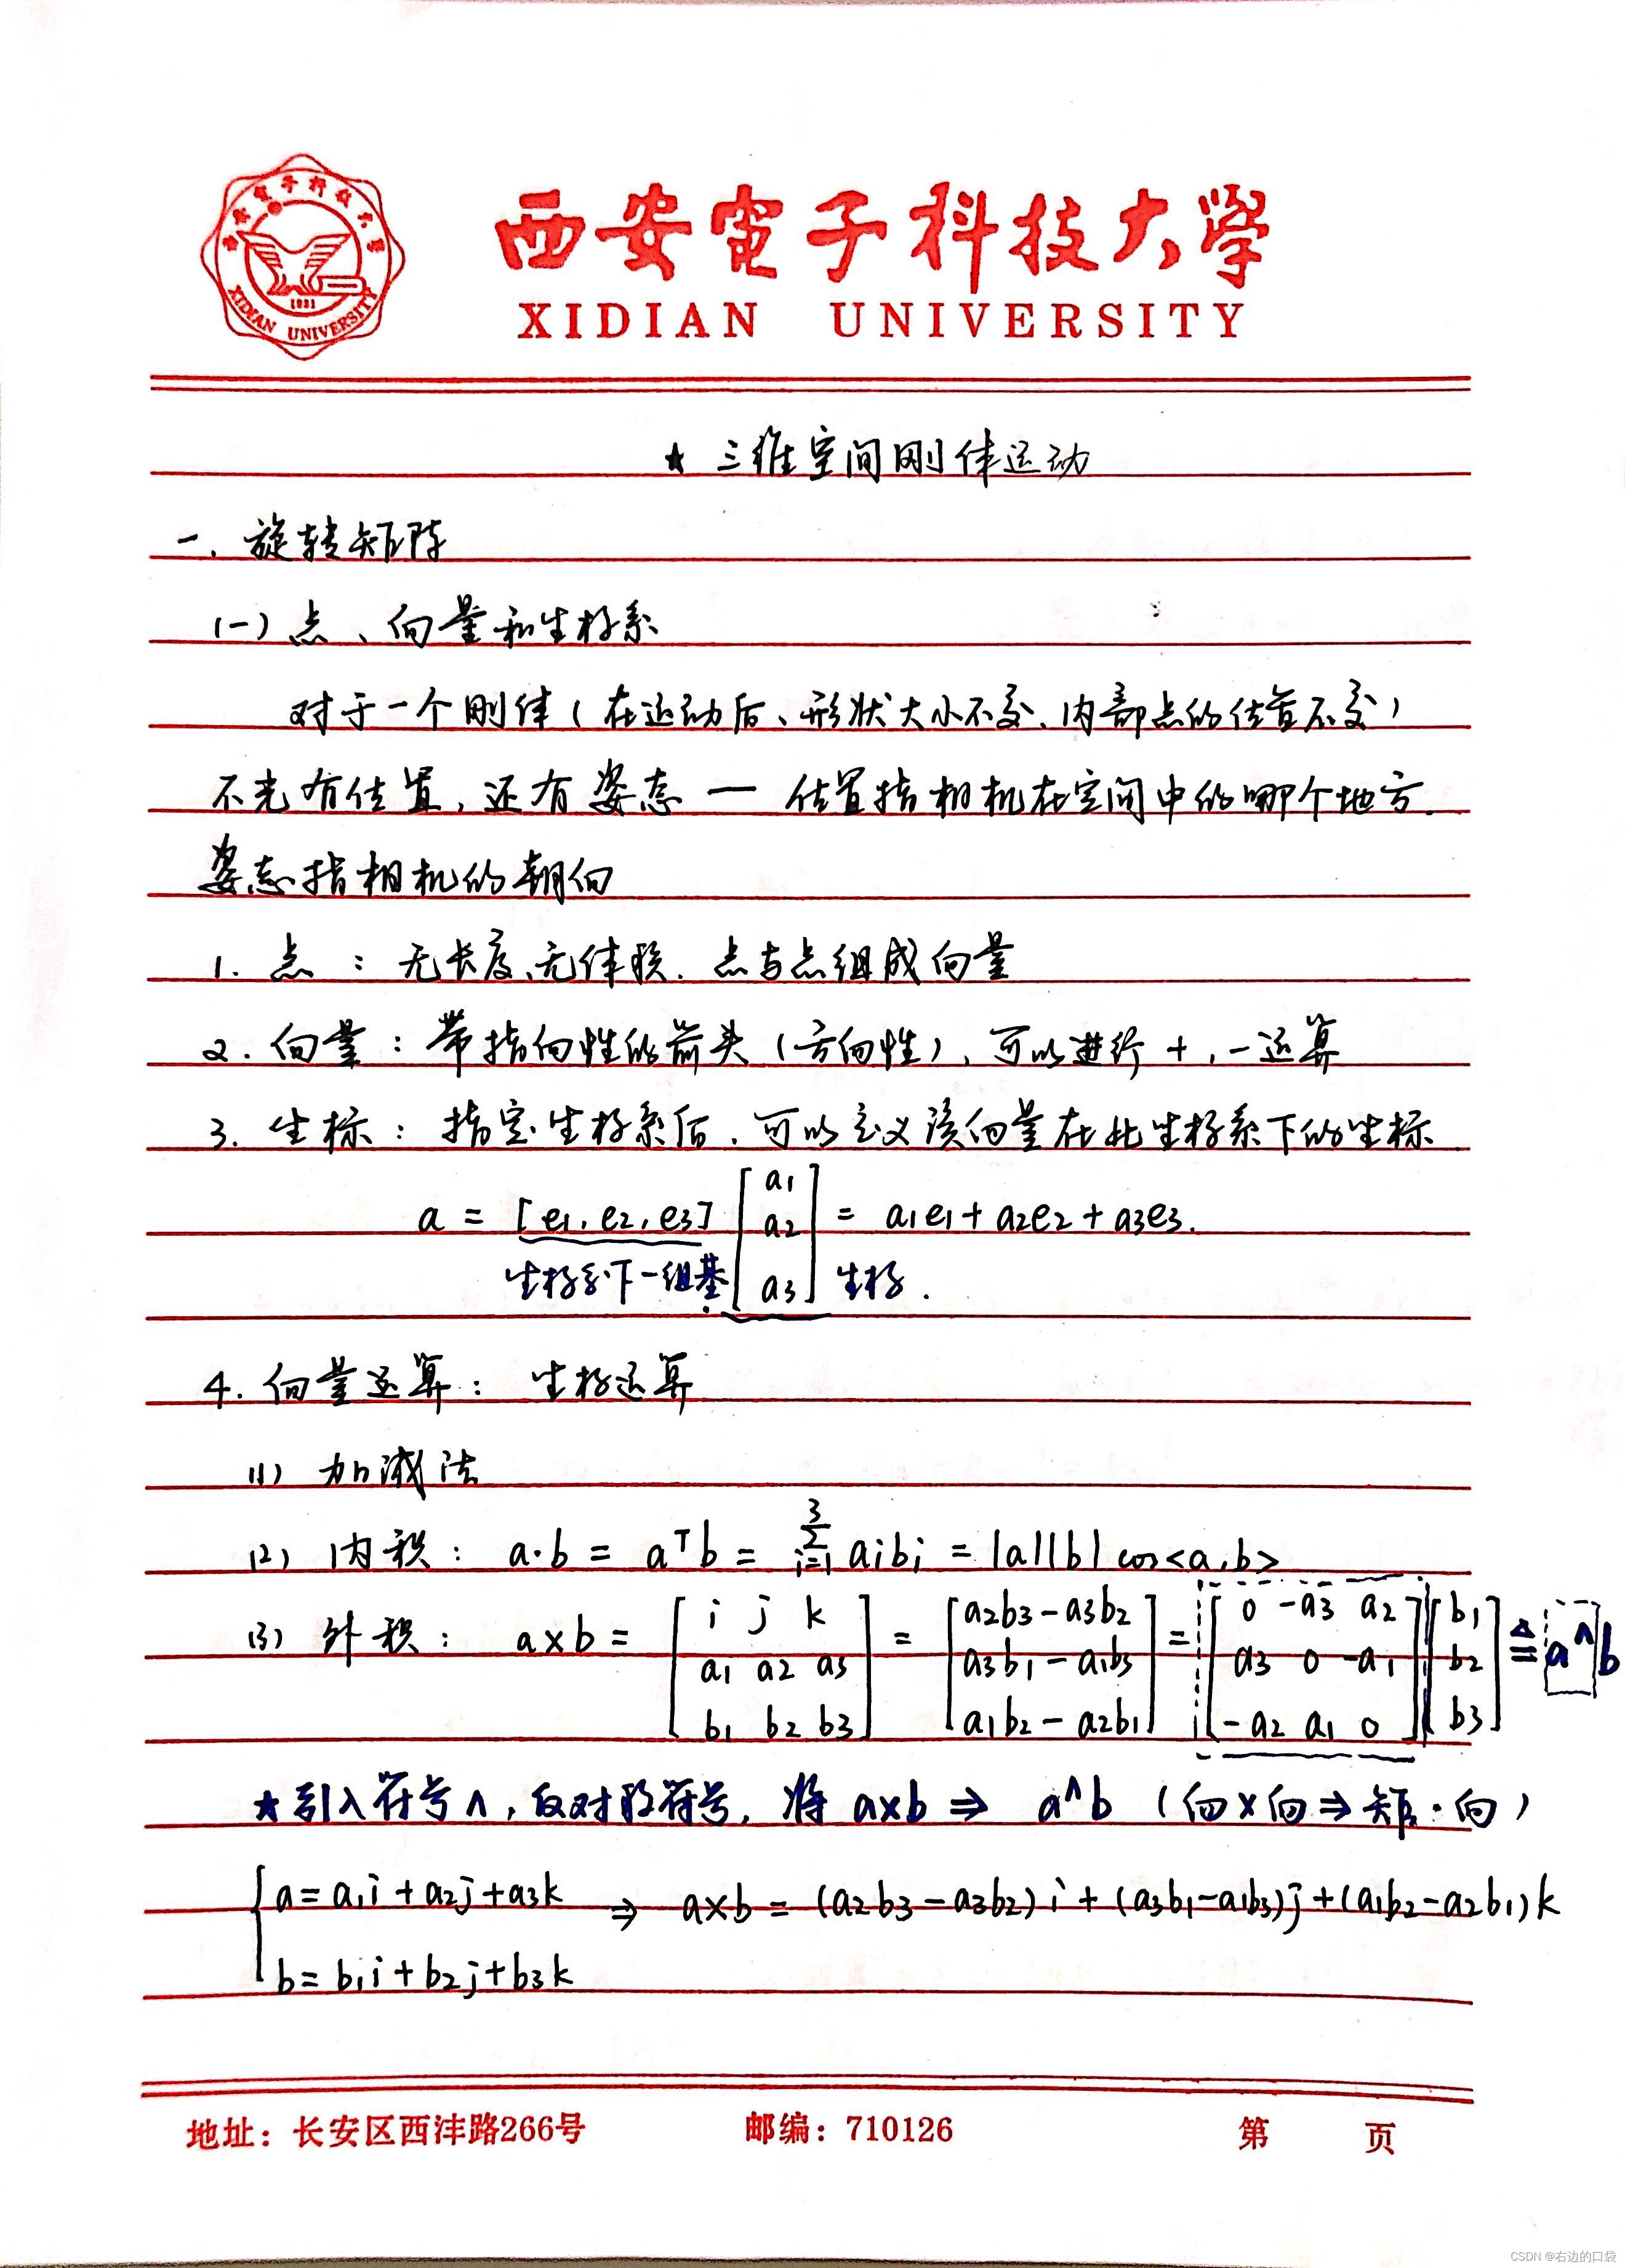 西安电子科技大学
XIDIAN UNIVERSITY
西安电子科技大学
1931
XIDIAN UNIVERSITY
★ 三维空间刚体运动
一. 旋转矩阵
(一) 点、向量和坐标系
对于一个刚体(在运动后、形状大小不变、内部点的位置不变)
不光有位置, 还有姿态 — 位置指相机在空间中的哪个地方.
姿态指相机的朝向
1. 点 : 无长度、无体积. 点与点组成向量
2. 向量 : 带指向性的箭头 (方向性), 可以进行 +, - 运算
3. 坐标 : 指定坐标系后, 可以定义该向量在此坐标系下的坐标
a = [e1, e2, e3] [a1 a2 a3] = a1e1 + a2e2 + a3e3.
坐标系下一组基. 坐标.
4. 向量运算 : 坐标运算
(1) 加减法
(2) 内积 : a·b = aᵀb = 3Σi=1 aibi = |a||b| cos<a,b>
(3) 外积 : a×b = [i j k; a1 a2 a3; b1 b2 b3] = [a2b3-a3b2; a3b1-a1b3; a1b2-a2b1] = [0 -a3 a2; a3 0 -a1; -a2 a1 0] [b1; b2; b3] ≜ a^b
★ 引入符号∧, 反对称符号, 将 a×b ⇒ a^b (向×向⇒矩·向)
{ a = a1i + a2j + a3k ⇒ a×b = (a2b3-a3b2)i + (a3b1-a1b3)j + (a1b2-a2b1)k
b = b1i + b2j + b3k
地址: 长安区西沣路266号 邮编: 710126 第 页
CSDN @右边的口袋